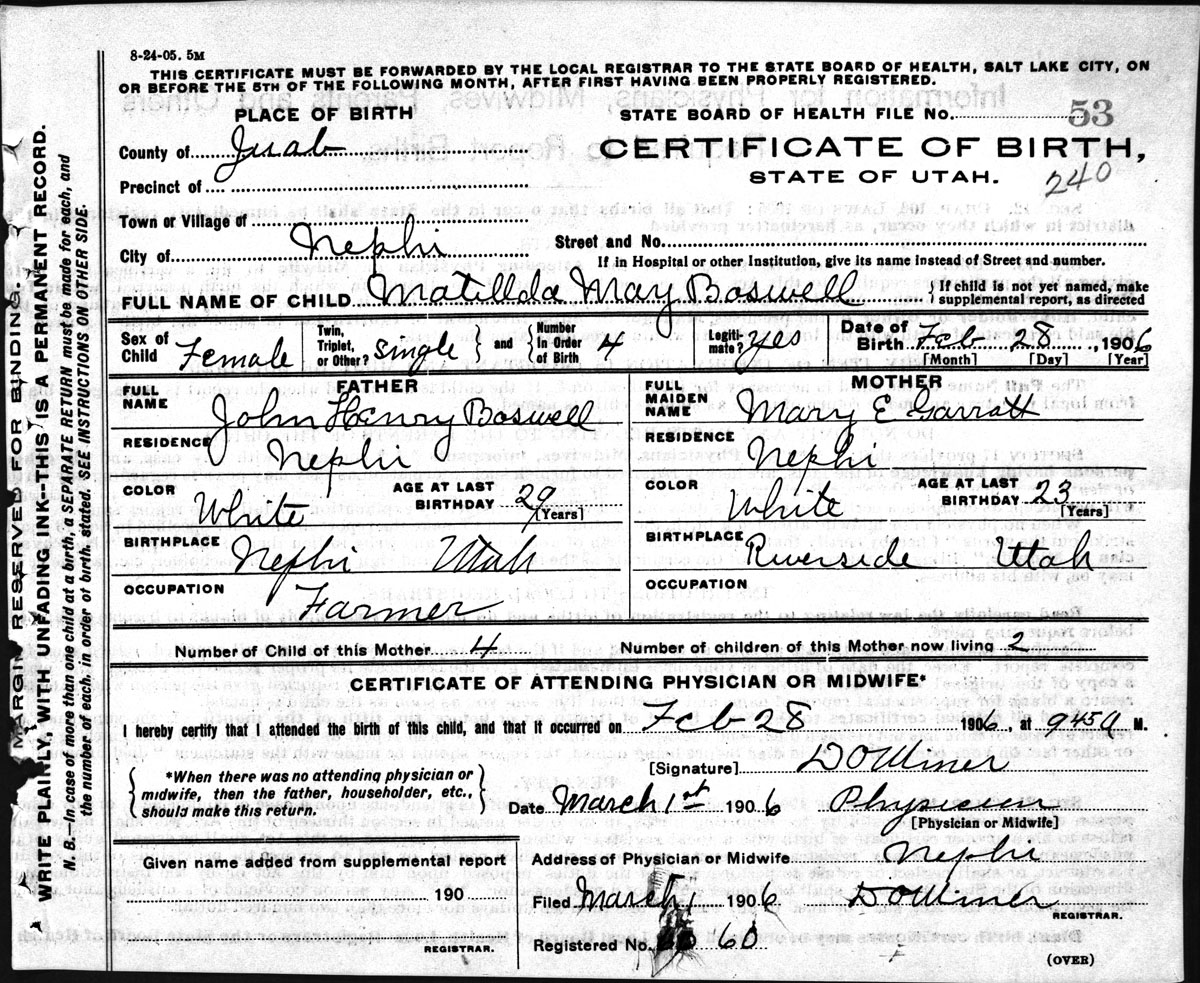 8-24-05. 5M
THIS CERTIFICATE MUST BE FORWARDED BY THE LOCAL REGISTRAR TO THE STATE BOARD OF HEALTH, SALT LAKE CITY, ON
OR BEFORE THE 5TH OF THE FOLLOWING MONTH, AFTER FIRST HAVING BEEN PROPERLY REGISTERED.
PLACE OF BIRTH
STATE BOARD OF HEALTH FILE No. 53
County of Juab
CERTIFICATE OF BIRTH,
STATE OF UTAH.
240
Precinct of
Town or Village of
City of Nephi
Street and No.
If in Hospital or other Institution, give its name instead of Street and number.
FULL NAME OF CHILD Matillda May Boswell { If child is not yet named, make
supplemental report, as directed
Sex of Child Female Twin, Triplet, or Other? single } and { Number In Order of Birth 4 Legiti-mate? yes Date of Birth Feb 28, 1906
[Month] [Day] [Year]
FATHER
MOTHER
FULL NAME John Henry Boswell
FULL MAIDEN NAME Mary E Garratt
RESIDENCE Nephi
RESIDENCE Nephi
COLOR White AGE AT LAST BIRTHDAY 29 [Years]
COLOR White AGE AT LAST BIRTHDAY 23 [Years]
BIRTHPLACE Nephi Utah
BIRTHPLACE Riverside Utah
OCCUPATION Farmer
OCCUPATION
Number of Child of this Mother 4
Number of children of this Mother now living 2
CERTIFICATE OF ATTENDING PHYSICIAN OR MIDWIFE*
I hereby certify that I attended the birth of this child, and that it occurred on Feb 28 1906 at 945 a M.
{ *When there was no attending physician or
midwife, then the father, householder, etc.,
should make this return. }
[Signature] D O Miner
Date March 1st 1906 Physician
[Physician or Midwife]
Given name added from supplemental report
190
REGISTRAR.
Address of Physician or Midwife Nephi
Filed March 1 1906 D O Miner
REGISTRAR.
Registered No. 60
(OVER)
MARGIN RESERVED FOR BINDING.
WRITE PLAINLY, WITH UNFADING INK--THIS IS A PERMANENT RECORD.
N. B.--In case of more than one child at a birth, a SEPARATE RETURN must be made for each, and
the number of each, in order of birth, stated. SEE INSTRUCTIONS ON OTHER SIDE.